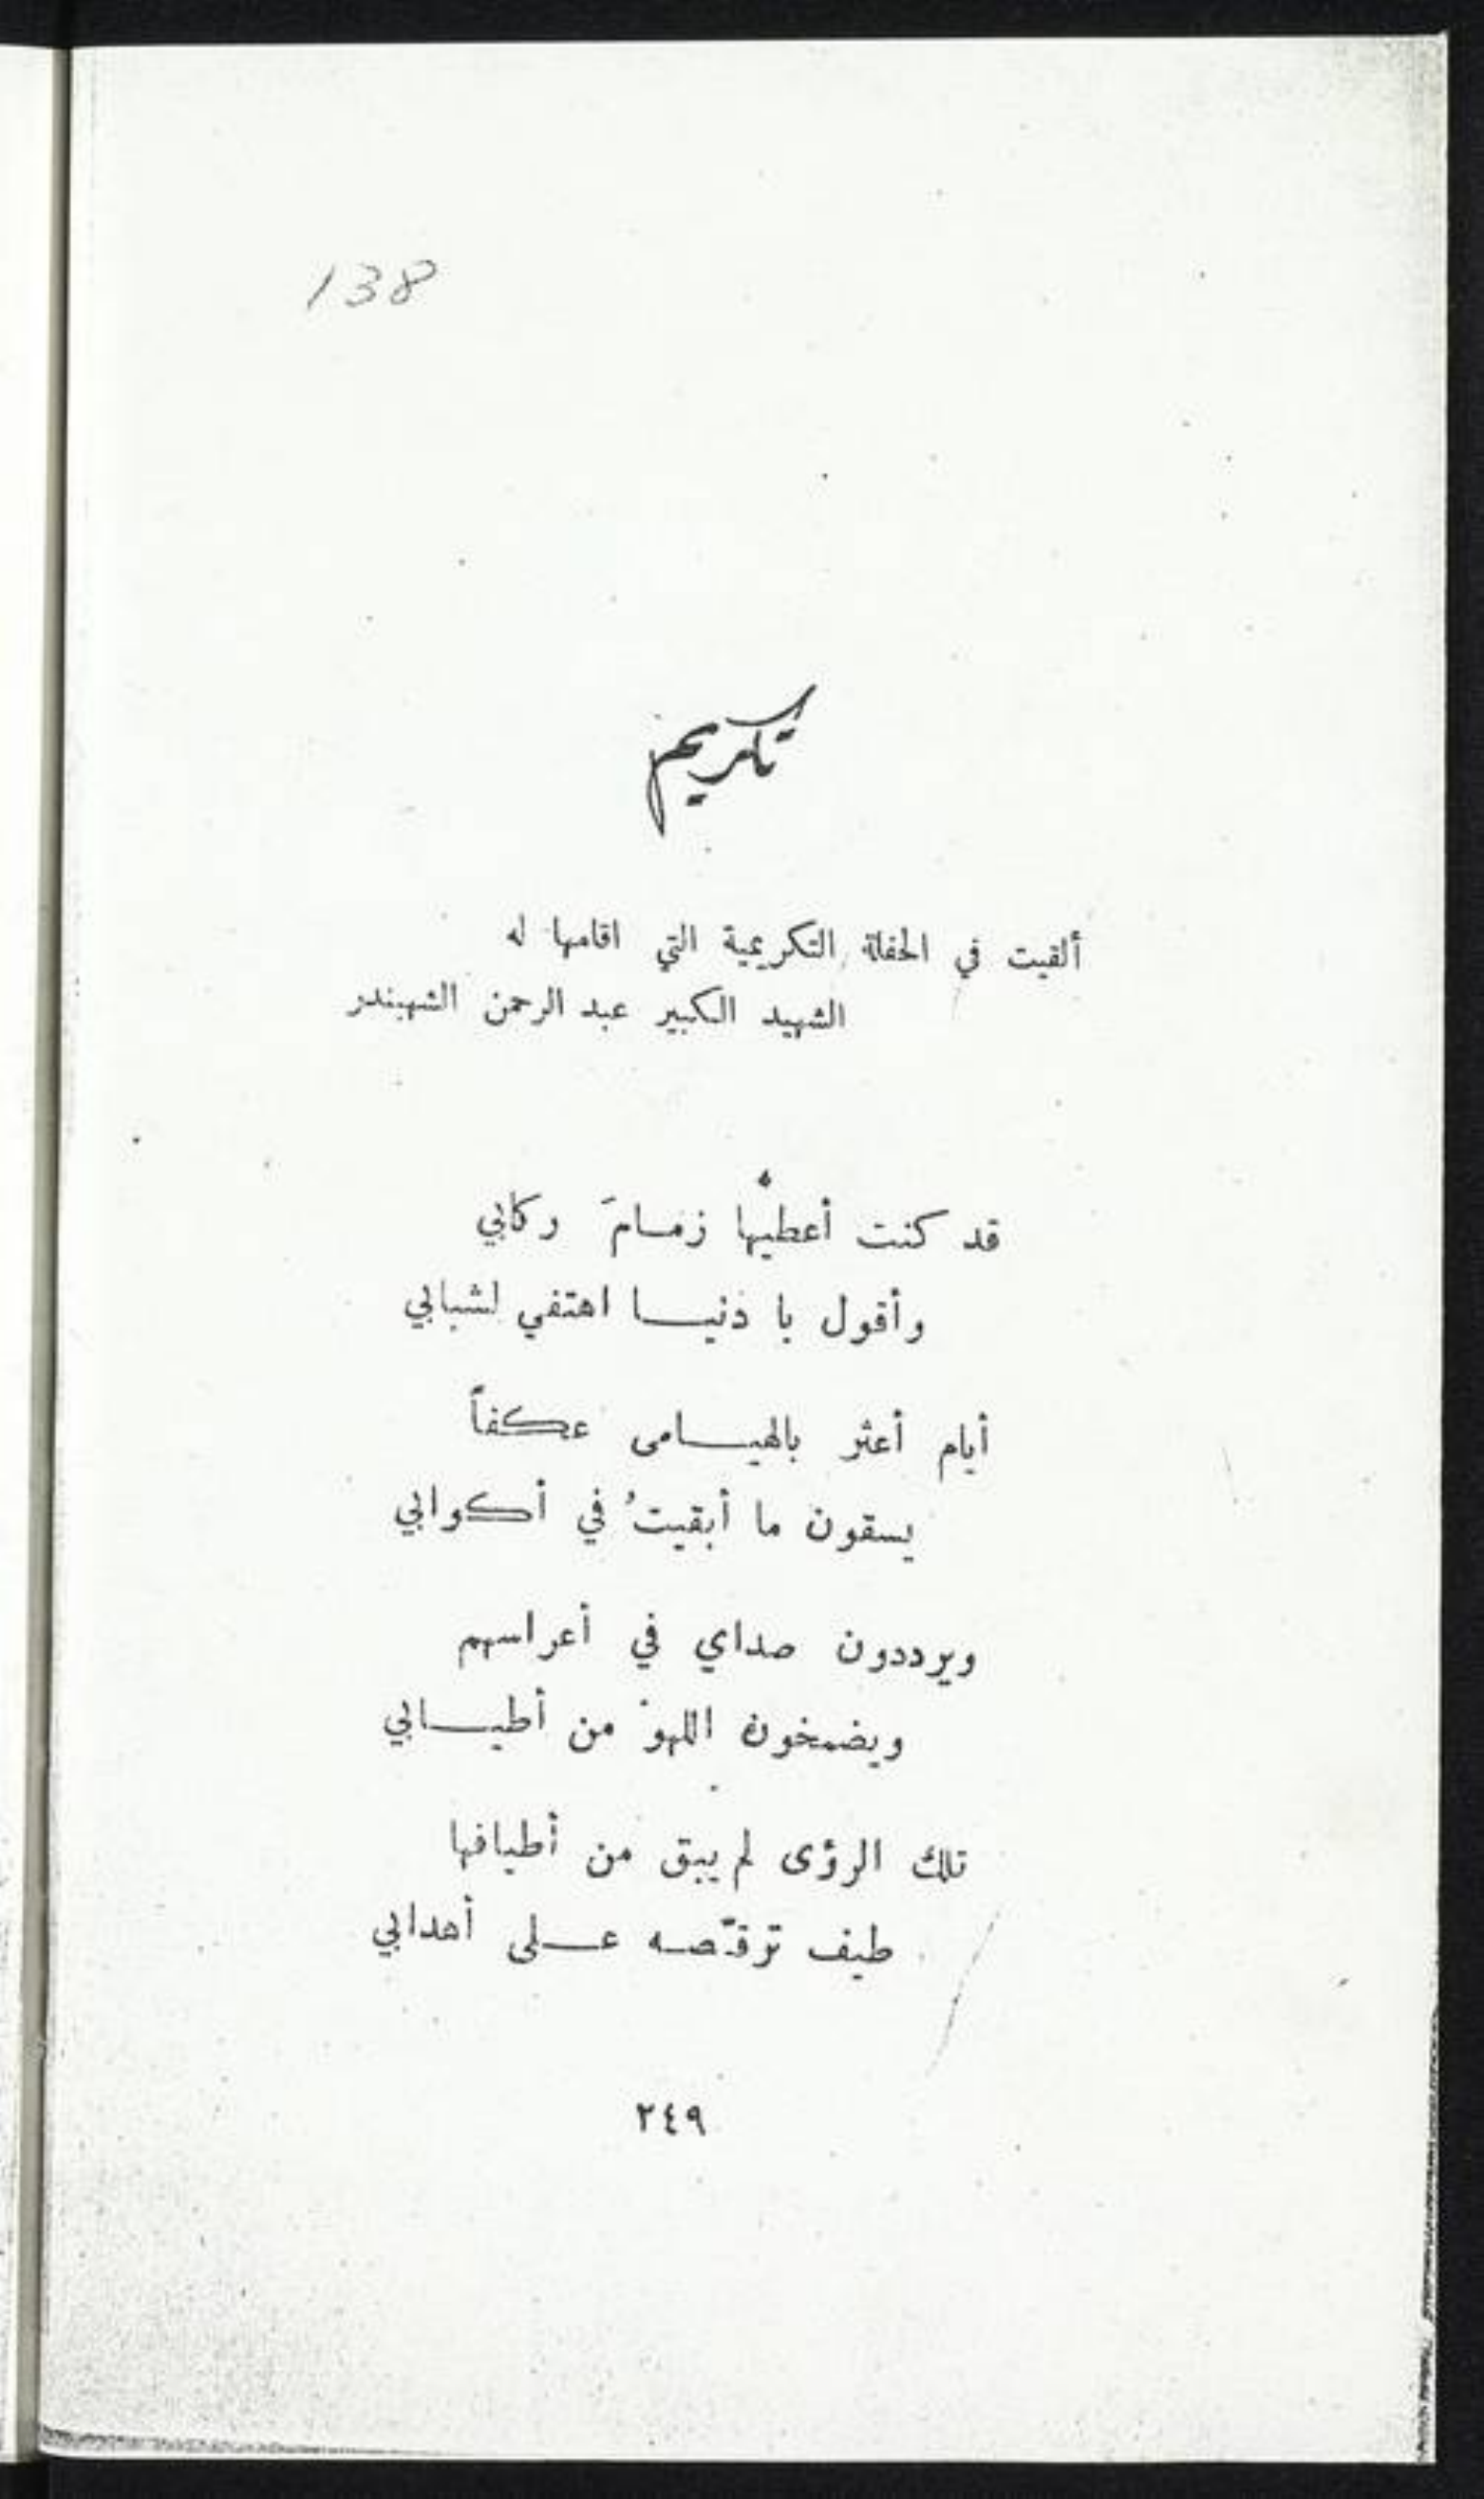 138
تكريم
ألقيت في الحفلة التكريمية التي اقامها له
الشهيد الكبير عبد الرحمن الشهبندر
قد كنت أعطيها زمامَ ركابي
وأقول يا دنيا اهتفي لشبابي
أيام أعثر بالهيامى عكفاً
يسقون ما أبقيتُ في أكوابي
ويرددون صداي في أعراسهم
ويضمخون اللهوَ من أطيابي
تلك الرؤى لم يبق من أطيافها
طيف ترقّصه على أهدابي
٢٤٩